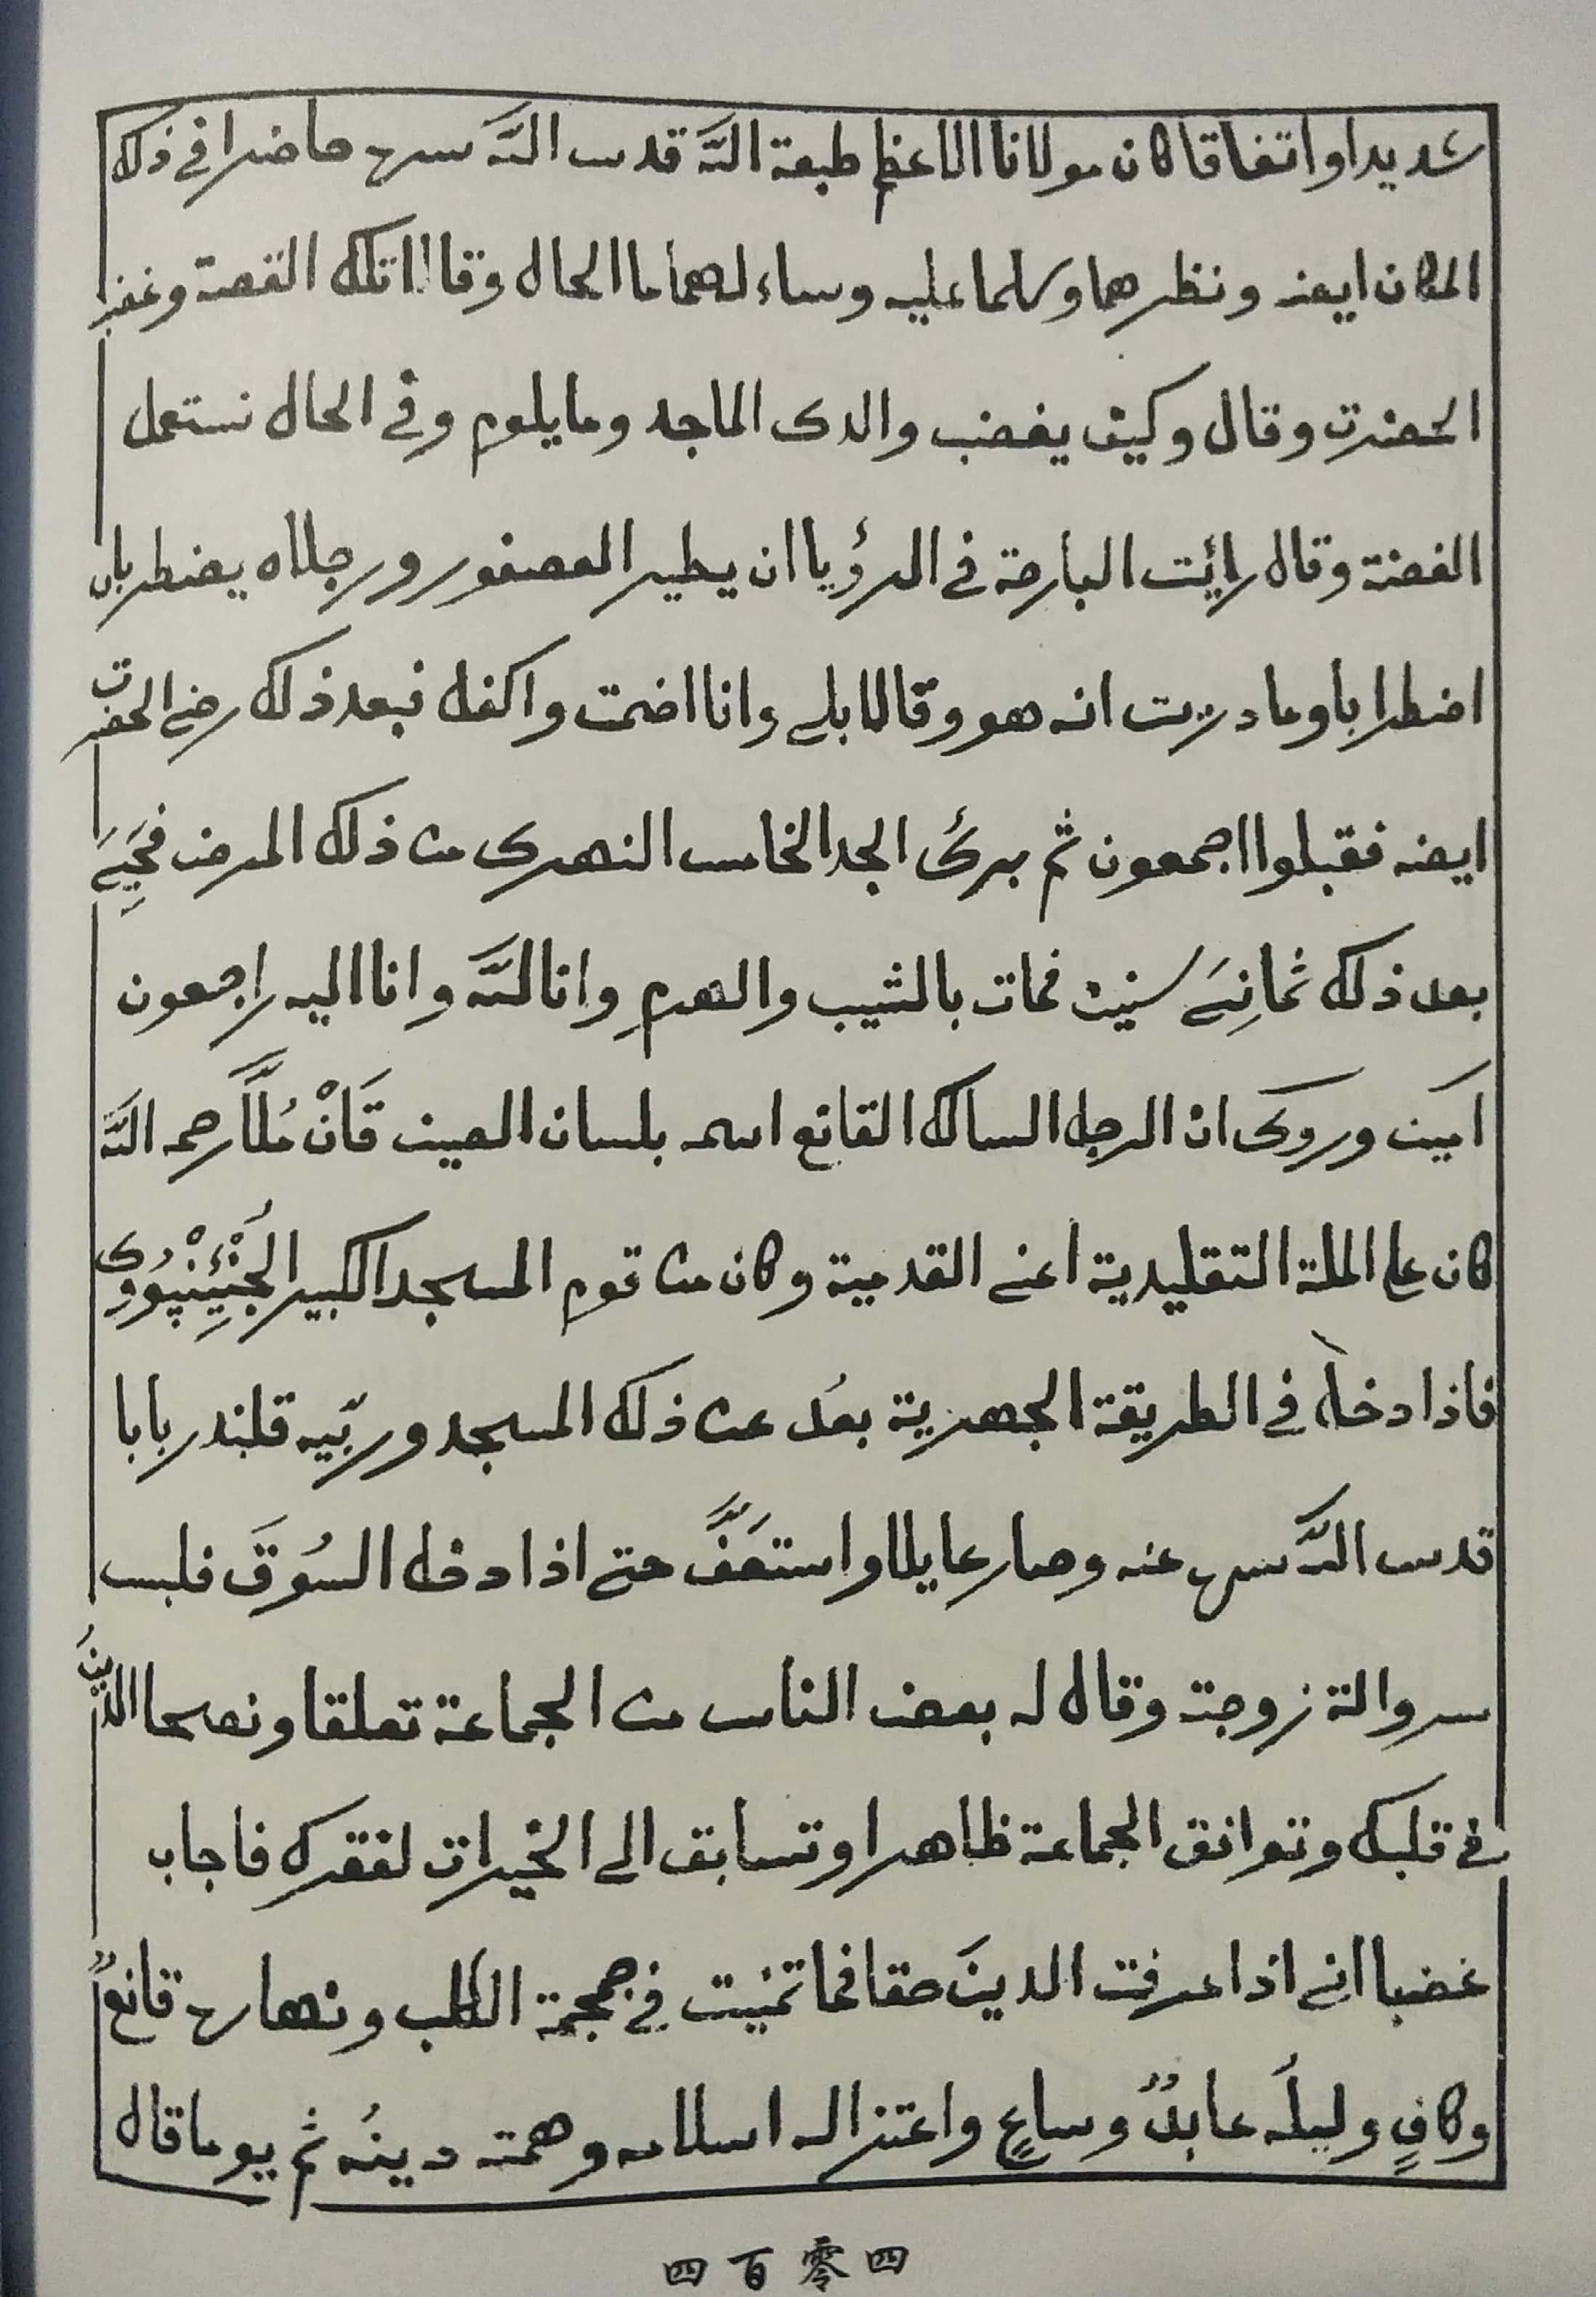 شديدا واتفاقا كان مولانا الاعظم طبعة اللَّه قدس اللَّه سره حاضرا في ذلك
المكان ايضه ونظرهما وسلما عليه وساء لهما ما الحال وقالا تلك القصة وغضب
الحضرت وقال وكيف يغضب والدى الماجد وما يلوم وفي الحال نستعمل
الفضة وقال رأيت البارحة في الرؤيا ان يطير العصفور ورجلاه يضطربان
اضطرابا وما دريت انه هو وقالا بلى وانا اضمت واكفل فبعد ذلك رضي الحضرت
ايضه فقبلوا اجمعون ثم برئ الجد الخامس النهرى من ذلك المرض فحَيِيَ
بعد ذلك ثمانِيَ سنين فمات بالشيب والهرم وانا للَّه وانا اليه راجعون
آمين وروى ان الرجل السالك القانع اسمه بلسان الصين قَانْ مُلَّا رحمه اللَّه
كان على الملة التقليدية اعنى القدمية وكان من قوم المسجد الكبير
فاذا دخل في الطريقة الجهرية بعُد عن ذلك المسجد وربّيه قلندر بابا
قدس اللَّه سره عنه وصار عايلا واستعَفَّ حتى اذا دخل السُوقَ فلبس
سروالة زوجته وقال له بعض الناس من الجماعة تعلقا ونصحا الدينُ
في قلبك وتوافق الجماعة ظاهرا وتسابق الى الخيرات لفقرك فاجاب
غضبا انى اذا عرفت الدينَ حقا فما تمنيت في جمجمة الكلب ونهاره قانعٌ
وكافٍ وليلَه عابدٌ وساعٍ واعتزاله اسلامه وهمته دينُه ثم يوما قال
四百零四